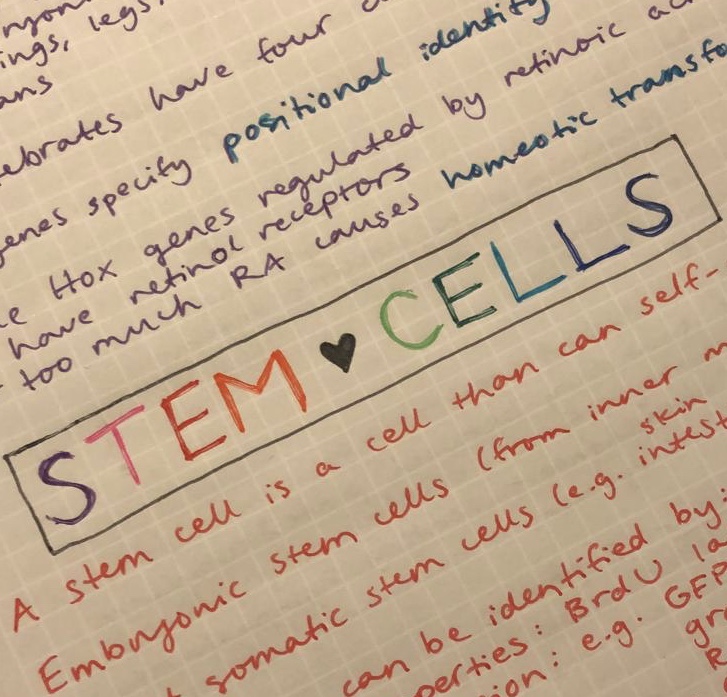 ings, legs,
ans
ebrates have four
genes specify positional identity
Hox genes regulated by retinoic ac
have retinol receptors
too much RA causes homeotic transfo
STEM ♥ CELLS
A stem cell is a cell than can self-
Embryonic stem cells (from inner m
skin
somatic stem cells (e.g. intest
can be identified by:
perties: BrdU la
ion: e.g. GFP
gr
R